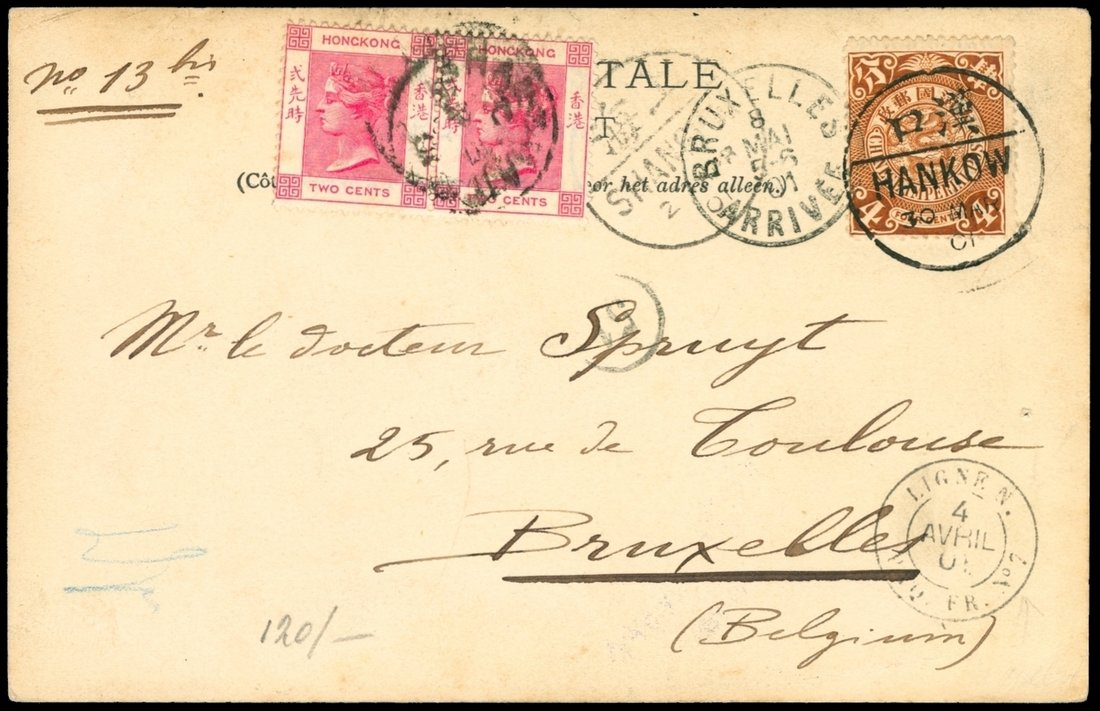 no 13 bis
HONGKONG
貳先時
香港
TWO CENTS
HONGKONG
香港
CENTS
TALE
T
(Côt
oor het adres alleen.)
SHAN
2
BRUXELLES
8
MAI
5-6
01
ARRIVEE
4
4
HANKOW
30 MAR
01
Mr. le docteur Spruyt
25, rue de Toulouse
Bruxelles
(Belgium)
LIGNE N.
4
AVRIL
01
PAQ. FR. No 7
120/-